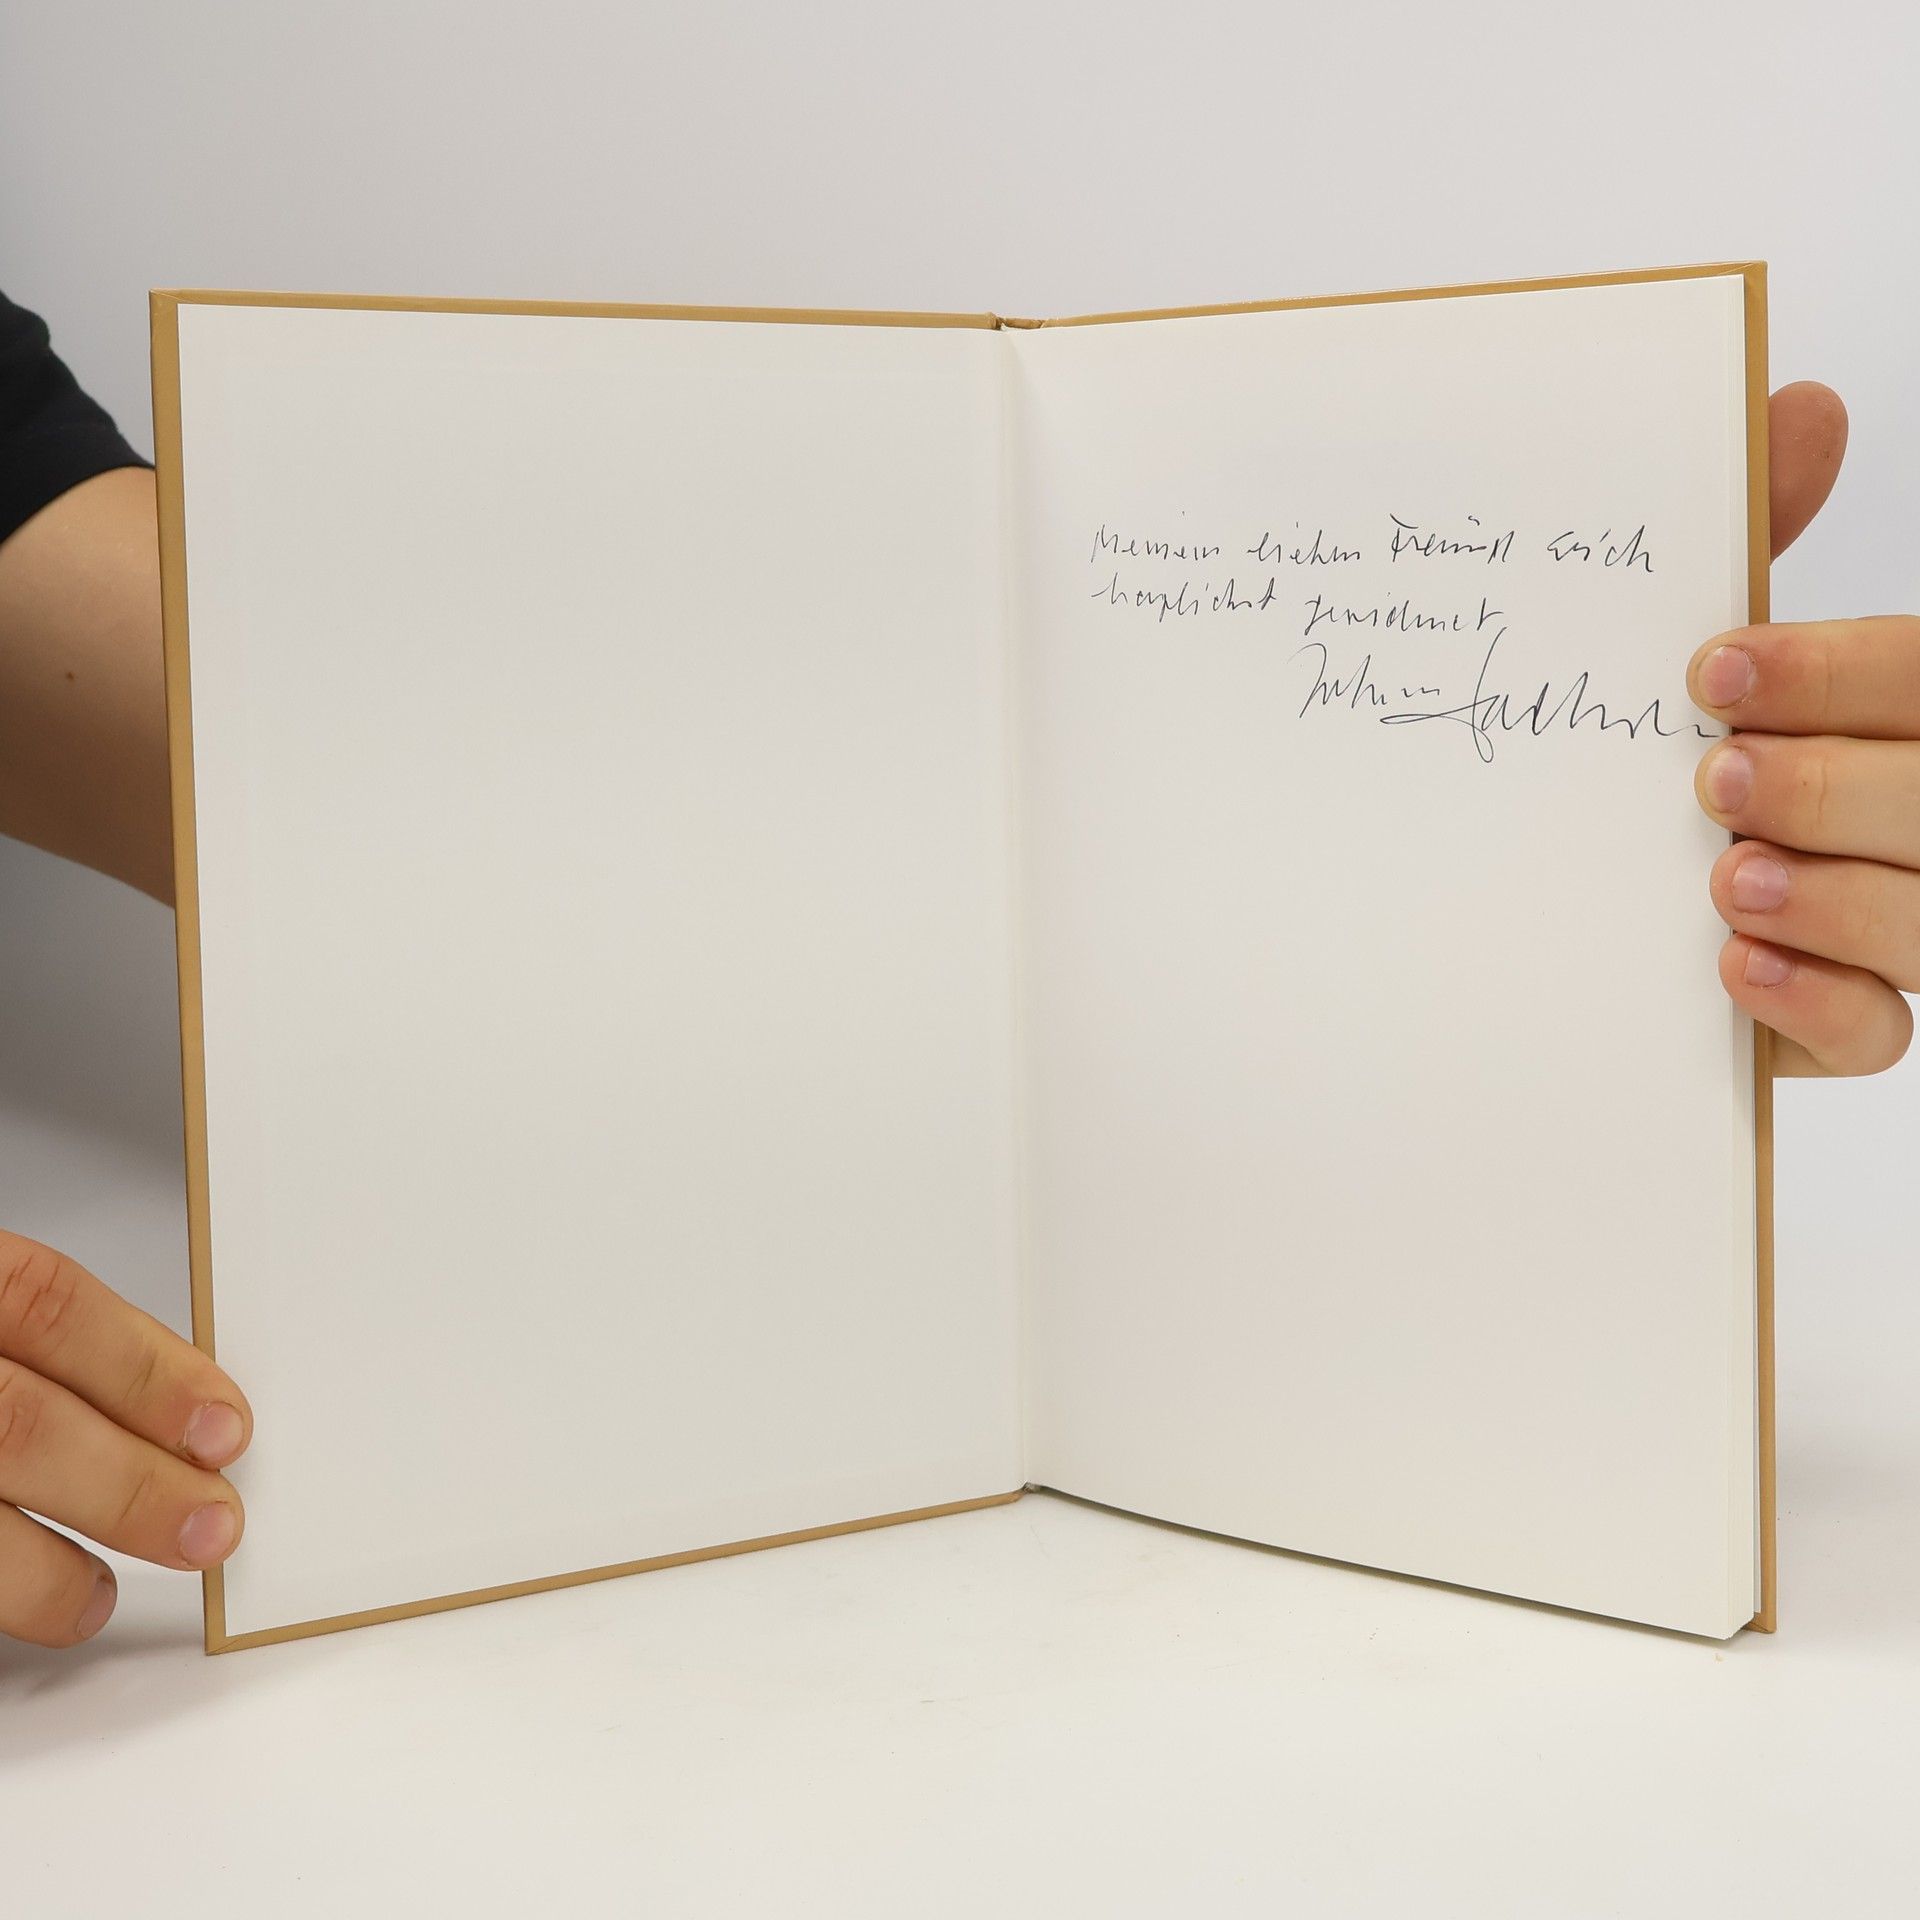 Meinem lieben Freund Erich
herzlichst gewidmet